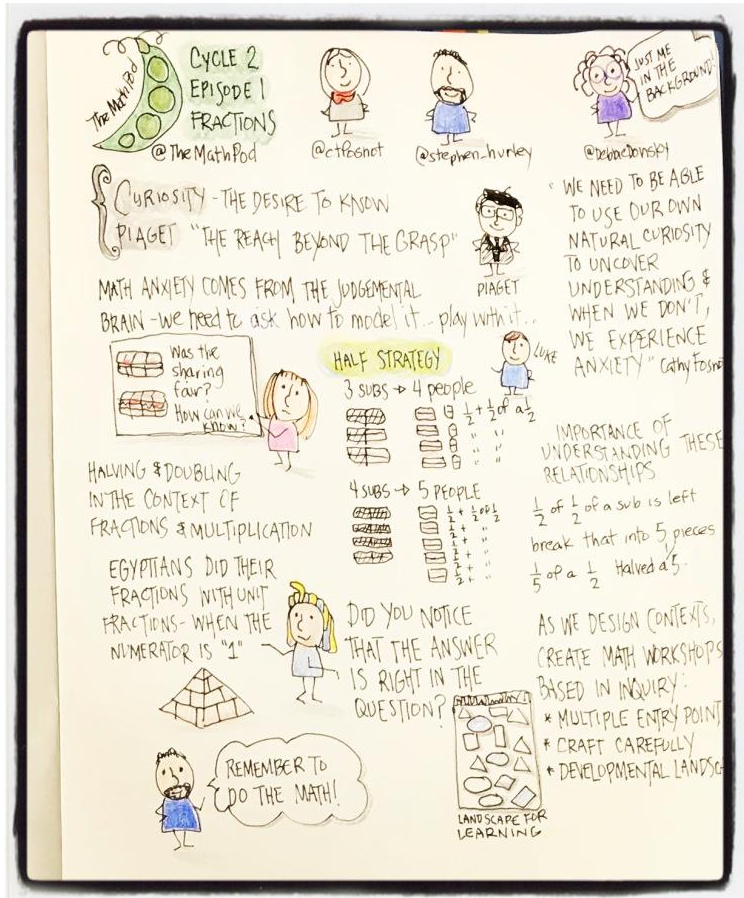 The MathPod
CYCLE 2
EPISODE 1
FRACTIONS
@TheMathPod
@ctfosnot
@stephen_hurley
@DebbieDonsky
JUST ME
IN THE
BACKGROUND!
CURIOSITY - THE DESIRE TO KNOW
PIAGET "THE REACH BEYOND THE GRASP"
PIAGET
MATH ANXIETY COMES FROM THE JUDGEMENTAL
BRAIN - we need to ask how to model it... play with it...
"WE NEED TO BE ABLE
TO USE OUR OWN
NATURAL CURIOSITY
TO UNCOVER
UNDERSTANDING &
WHEN WE DON'T,
WE EXPERIENCE
ANXIETY" Cathy Fosno
Was the
sharing
fair?
How can we
know?
HALF STRATEGY
LUKE
3 SUBS → 4 people
1/2 + 1/2 of a 1/2
" "
" "
" "
4 SUBS → 5 PEOPLE
1/2 + 1/2 of 1/2
1/2 + "
1/2 + "
1/2 + "
1/2 + "
HALVING & DOUBLING
IN THE CONTEXT OF
FRACTIONS & MULTIPLICATION
IMPORTANCE OF
UNDERSTANDING THESE
RELATIONSHIPS
1/2 of 1/2 of a sub is left
break that into 5 pieces
1/5 of a 1/2 Halved a 1/5.
EGYPTIANS DID THEIR
FRACTIONS WITH UNIT
FRACTIONS - WHEN THE
NUMERATOR IS "1"
DID YOU NOTICE
THAT THE ANSWER
IS RIGHT IN THE
QUESTION?
AS WE DESIGN CONTEXTS,
CREATE MATH WORKSHOPS
BASED IN INQUIRY:
* MULTIPLE ENTRY POINT
* CRAFT CAREFULLY
* DEVELOPMENTAL LANDSC
REMEMBER TO
DO THE MATH!
LANDSCAPE FOR
LEARNING